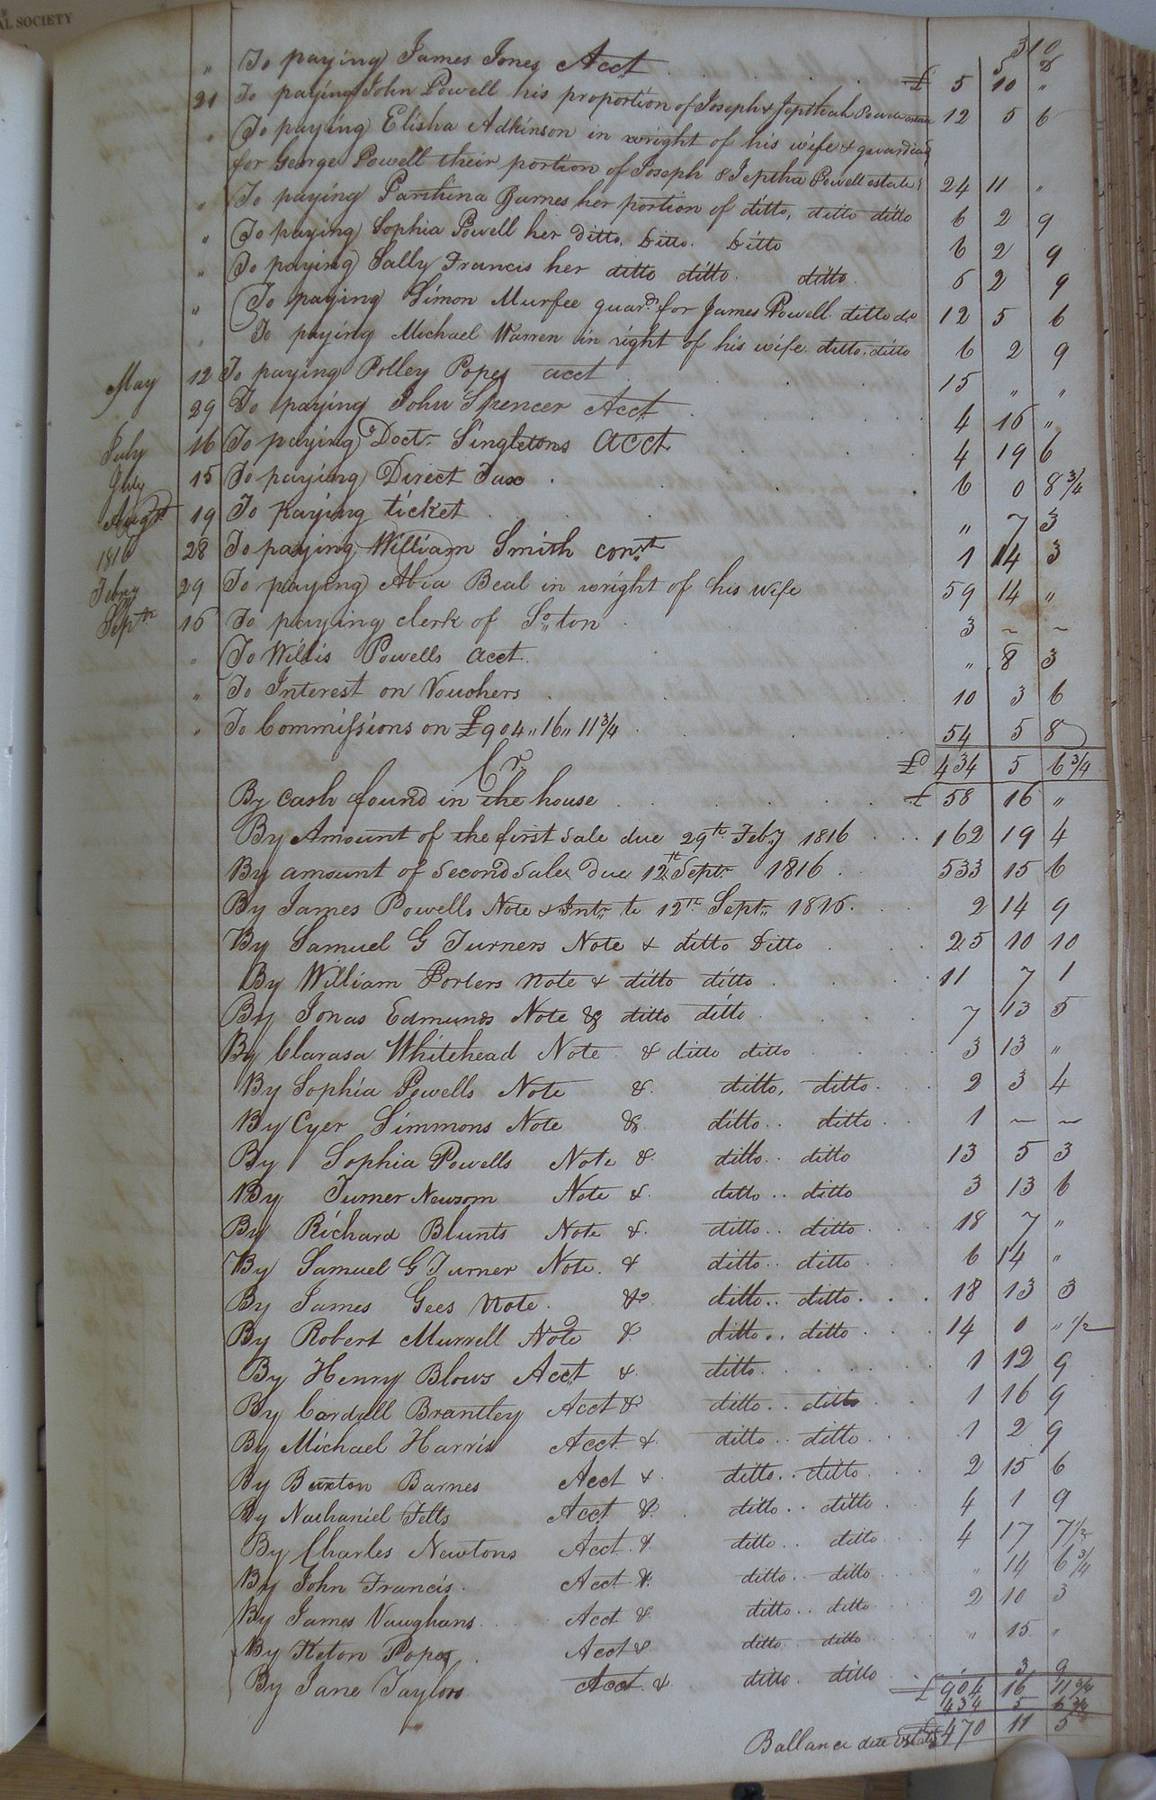 AL SOCIETY
310
" To paying James Jones Acct £ 5 10 "
21 To paying John Powell his proportion of Joseph & Jepthah Powell estate 12 5 6
" To paying Elisha Adkinson in wright of his wife & guardian
for George Powell their portion of Joseph & Jeptha Powell estate 24 11 "
" To paying Parthina Barnes her portion of ditto, ditto ditto 6 2 9
" To paying Sophia Powell her Ditto. Ditto. Ditto 6 2 9
" To paying Sally Francis her ditto ditto. ditto 6 2 9
" To paying Simon Murfee guard. for James Powell ditto do 12 5 6
" To paying Michael Warren in right of his wife ditto. ditto 6 2 9
May 12 To paying Polley Popes acct 15 " "
29 To paying John Spencer Acct 4 16 "
July 16 To paying Doctr. Singletons Acct 4 19 6
July 15 To paying Direct Tax 6 0 8 3/4
Augst 19 To paying ticket " 7 3
1816 28 To paying William Smith const 1 14 3
Febry 29 To paying Abia Beal in wright of his wife 59 14 "
Septr 16 To paying clerk of So"ton 3 ~ ~
" To Willis Powells acct. " 8 3
" To Interest on Vouchers 10 3 6
" To Commissions on £904"16"11 3/4 54 5 8
£ 434 5 6 3/4
Cr.
By Cash found in the house £ 58 16 "
By Amount of the first sale due 29th Feby 1816 162 19 4
By amount of second sale due 12th Septr 1816 533 15 6
By James Powells Note & Intr. to 12th Septr. 1816 2 14 9
By Samuel G Turners Note & ditto Ditto 25 10 10
By William Porters note & ditto ditto 11 7 1
By Jonas Edmunds Note & ditto ditto 7 13 5
By Clarasa Whitehead Note & ditto ditto 3 13 "
By Sophia Powells Note & ditto, ditto 2 3 4
By Cyer Simmons Note & ditto.. ditto 1 ~ ~
By Sophia Powells Note & ditto.. ditto 13 5 3
By Turner Newsom Note & ditto.. ditto 3 13 6
By Richard Blunts Note & ditto.. ditto 18 7 "
By Samuel G Turner Note. & ditto.. ditto 6 14 "
By James Gees Note. & ditto.. ditto 18 13 3
By Robert Murrell Note & ditto.. ditto 14 0 " 1/2
By Henry Blows Acct & ditto 1 12 9
By Cordall Brantley Acct & ditto.. ditto 1 16 9
By Michael Harris Acct & ditto.. ditto 1 2 9
By Buxton Barnes Acct & ditto.. ditto 2 15 6
By Nathaniel Felts Acct & ditto.. ditto 4 1 9
By Charles Newtons Acct & ditto.. ditto 4 17 7 1/2
By John Francis. Acct & ditto.. ditto " 14 6 3/4
By James Vaughans Acct & ditto.. ditto 2 10 3
By Popes Acct & ditto ditto " 15 "
By Jane Taylors Acct & ditto. ditto 3 9
£ 904 16 11 3/4
434 5 6 3/4
Ballance due Estate £ 470 11 5